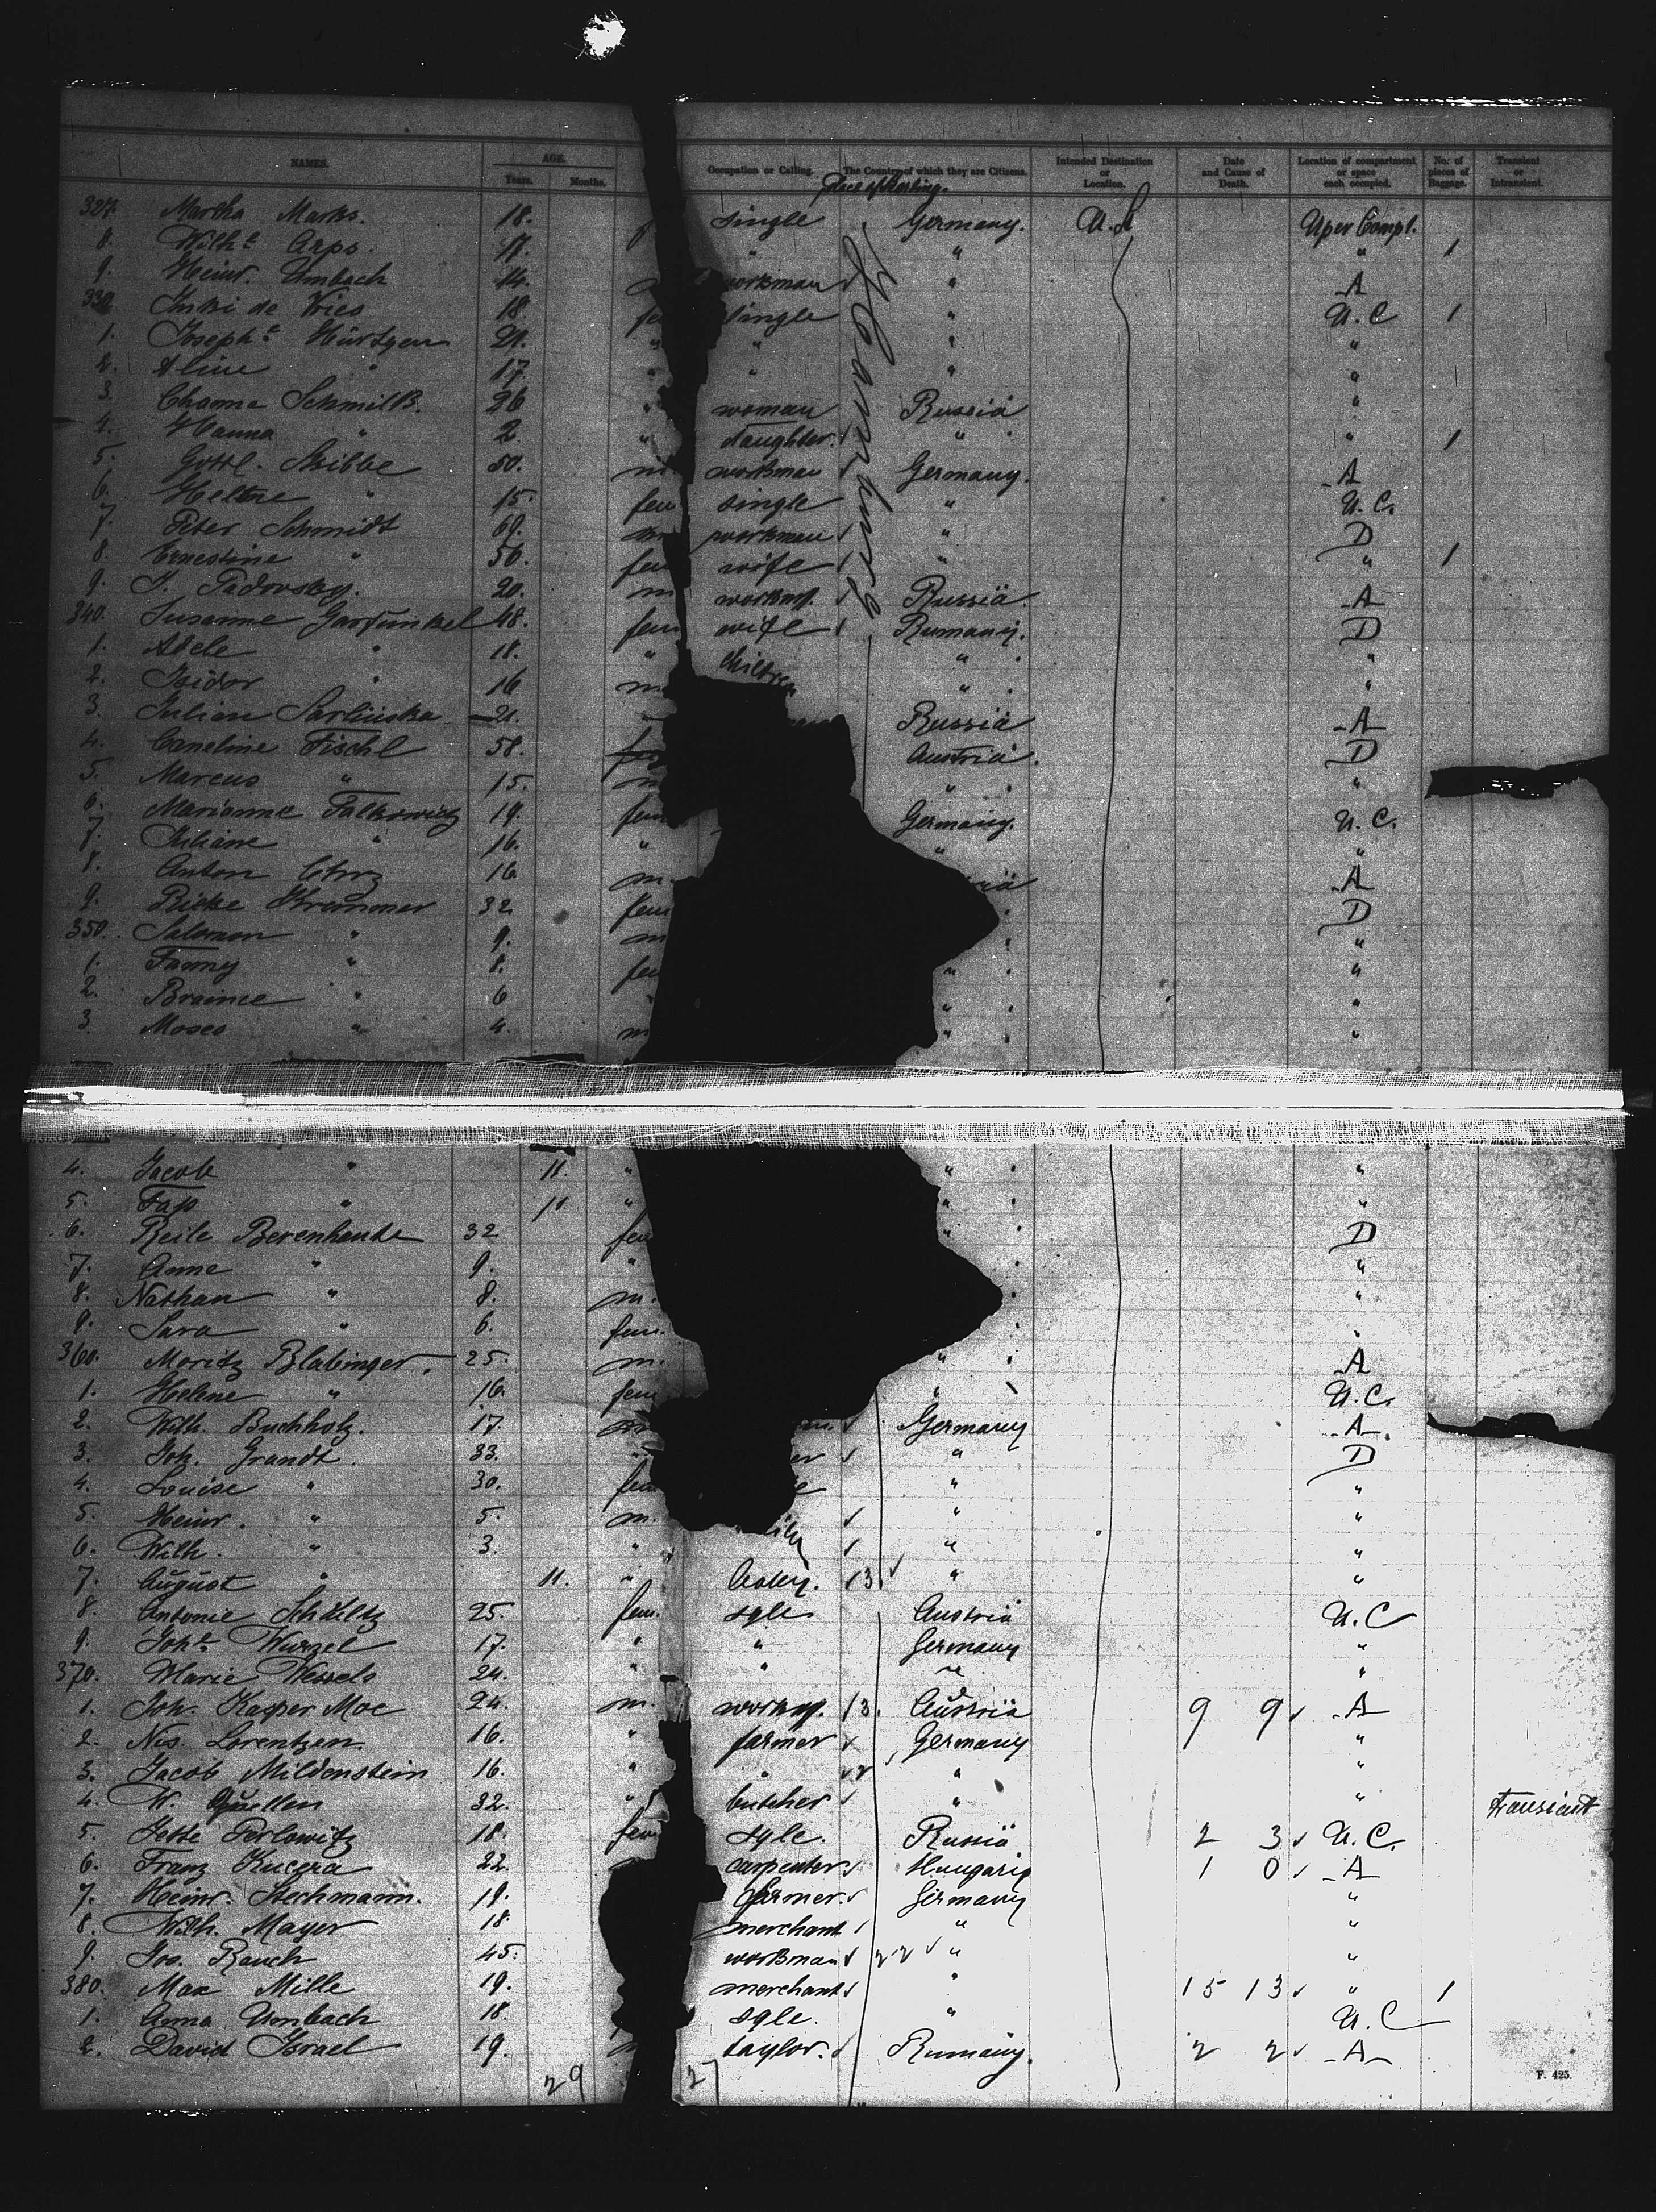 NAMES. AGE. Years. Months. Occupation or Calling. The Country of which they are Citizens. Intended Destination or Location. Date and Cause of Death. Location of compartment or space each occupied. No. of pieces of Baggage. Transient or Intransient.
Hamburg
327. Martha Marks. 18. single Germany. U.S. Uper Compt.
8. Wilhe Arps. 17. " " " 1
9. Heinr. Umbach 14. workman " A
330. de Vries 18. fe single " U.C 1
1. Josephe Hürtgen 21. " " " "
2. Aline " 17. " " " "
3. Schmilk. 26 " woman Russia "
4. Hanna " 2. " daughter. " " 1
5. Gottl. Skibbe 50. m. workman Germany. A
6. Helene " 15. fem single " U.C.
7. Peter Schmidt 60. m workman " D
8. Ernestine " 50. fem wife " " 1
9. J. Padovsky. 20. m workm. Russia. A
340. Susanne Garfunkel 48. fem wife Rumany. D
1. Adele " 18. " children " "
2. Isidor " 16 m " "
3. Julian 21. Russia A
4. Fischl 58. Austria. D
5. Marcus " 15. m " "
6. Marianne Falkowitz 19. fem Germany. U.C.
7. Juliane " 16. " " "
8. Anton 16. m. A
9. Krammer 32 fem D
350. Salomon " 9. m "
1. Fanny " 8. fem " "
2. " 6 " " "
3. Moses " 4. m " "
4. Jacob " 11. " " "
5. " 11 " " "
6. Reile 32 fem " D
7. Anne " 9. " "
8. Nathan " 8. m. "
9. Sara " 6. fem. "
360. Moritz Blabinger. 25. m. " A
1. Helene " 16. fem " U.C.
2. Wilh. Buchholz. 17. m Germany A
3. Joh. Grandt. 33. " " D
4. Louise " 30. fem " "
5. Heinr. " 5. m. " "
6. Wilh. " 3. " " "
7. August " 11. " baby. 13 " "
8. Antonie Schultz 25. fem. sgle Austria U.C
9. Johe Wurzel 17. " " Germany "
370. Marie Wessels 24. " " "
1. Joh. Kasper Moe 24. m. workm. 13. Austria 9 9 A
2. Nis. Lorentzen. 16. " farmer Germany "
3. Jacob Mildenstein 16. " " " "
4. W. Quellen 32. " butcher " " transient
5. Jette Perlowitz 18. fem sgle. Russia 2 3 U.C.
6. Franz Kucera 22. carpenter Hungaria 1 0 A
7. Heinr. Stechmann. 19. farmer. Germany "
8. Wilh. Mayer 18. merchant " "
9. Jos. Rauch 45. workman 22 " "
380. Max Mille 19. merchant " 15 13 " 1
1. Anna Umbach 18. sgle. " U.C
2. David Israel 19. taylor. Rumany. 2 2 A
29 27
F. 425.